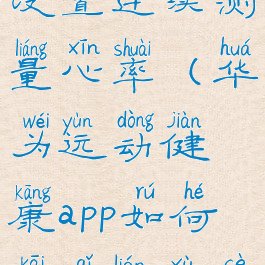 设置连续测
liáng xīn shuài huá
量心率(华
wéi yùn dòng jiàn
为运动健
kāng rú hé
康app如何
kāi qǐ lián xù cè